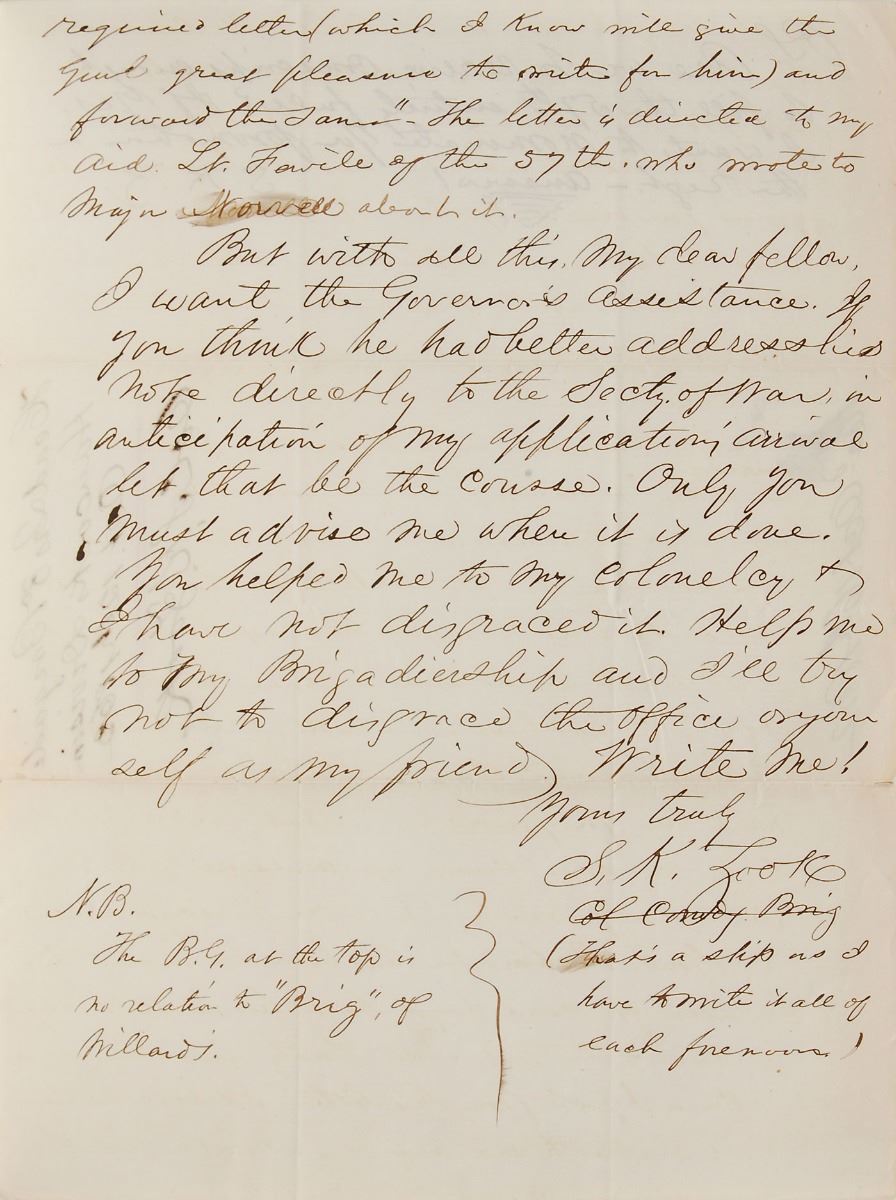 required letter (which I know will give the
Genl great pleasure to write for him) and
forward the same" - The letter is directed to my
aid Lt. Favile of the 57th. who wrote to
Major Norvell about it.
But with all this, my dear fellow,
I want the Governor's assistance. If
you think he had better address his
note directly to the Secty. of War, in
anticipation of my application's arrival
let that be the course. Only you
must advise me when it is done.
You helped me to my colonelcy &
I have not disgraced it. Help me
to my Brigadiership and I'll try
not to disgrace the office or your
self as my friend) Write me!
Yours truly
S. K. Zook
Col Comdg Brig
(That's a slip as I
have to write it all of
each forenoon)
N.B.
The B.G. at the top is
no relation to "Brig", of
Willard's.